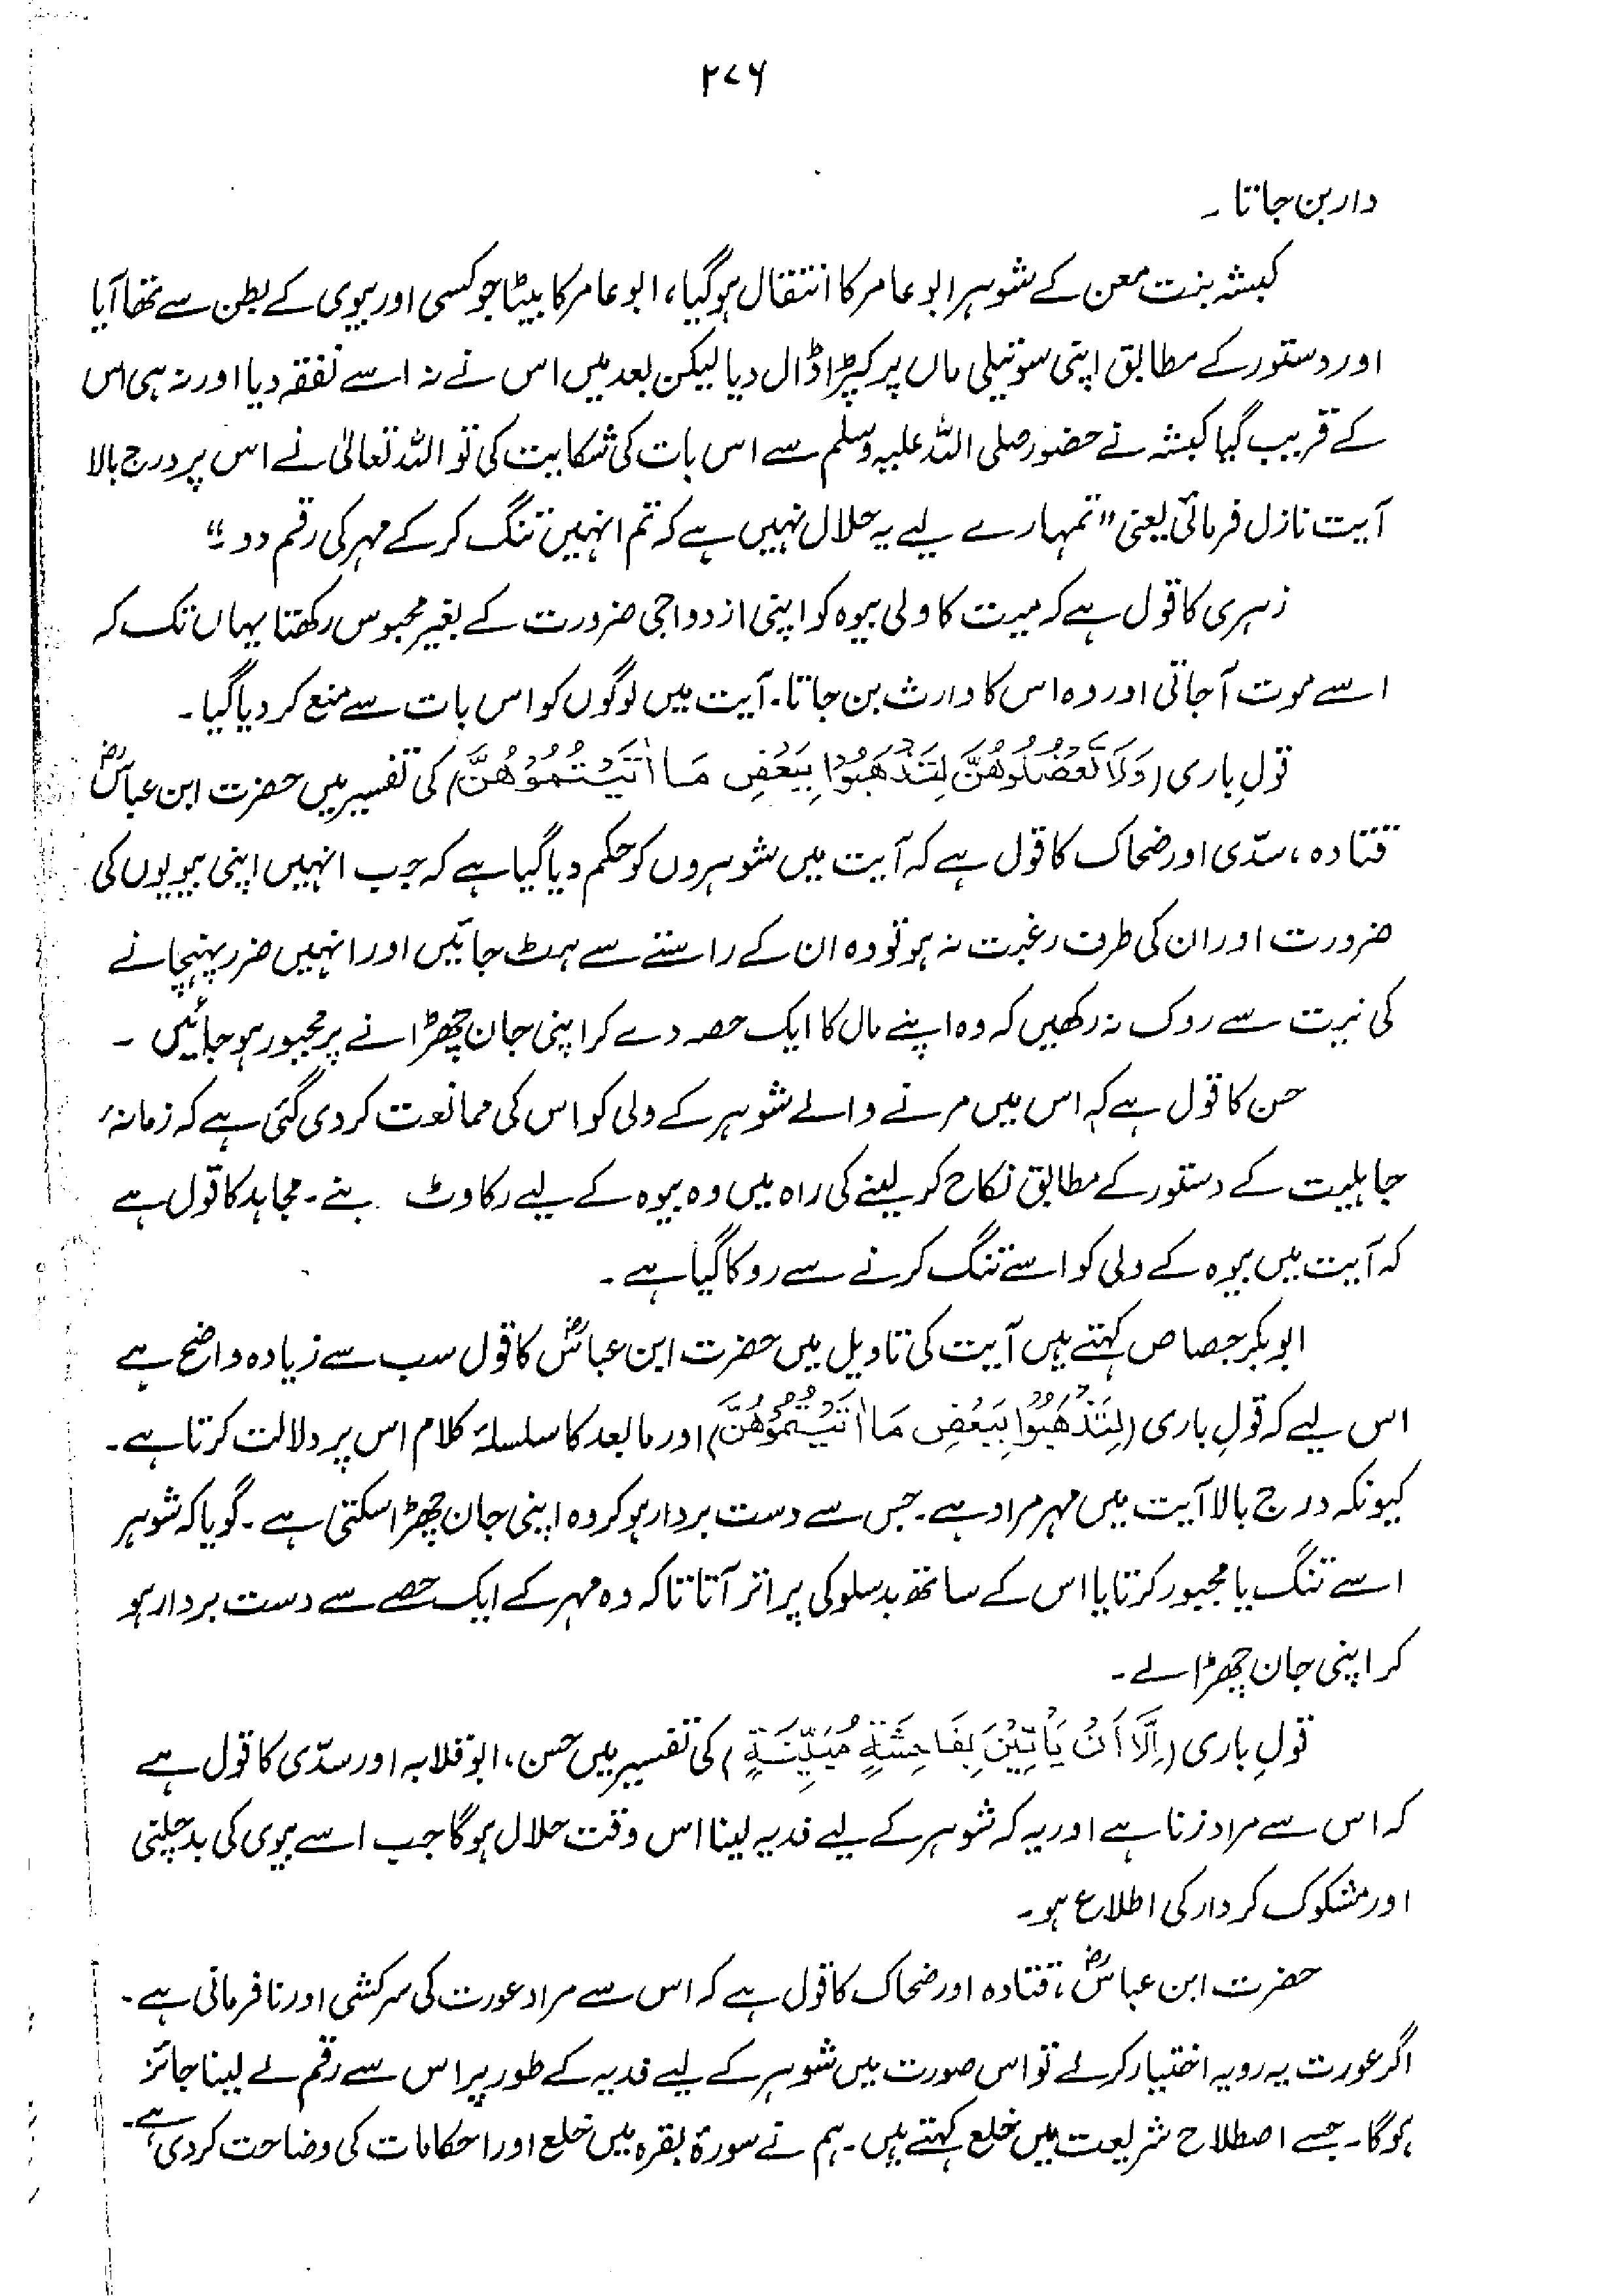 ۲۷۶
دار بن جاتا۔
کبشہ بنت معن کے شوہر ابو عامر کا انتقال ہوگیا، ابو عامر کا بیٹا جو کسی اور بیوی کے بطن سے تھا آیا
اور دستور کے مطابق اپنی سوتیلی ماں پر کپڑا ڈال دیا لیکن بعد میں اس نے نہ اسے نفقہ دیا اور نہ ہی اس
کے قریب گیا کبشہ نے حضور صلی اللہ علیہ وسلم سے اس بات کی شکایت کی تو اللہ تعالیٰ نے اس پر درج بالا
آیت نازل فرمائی یعنی "تمہارے لیے یہ حلال نہیں ہے کہ تم انہیں تنگ کر کے مہر کی رقم دو۔"
زہری کا قول ہے کہ میت کا ولی بیوہ کو اپنی ازدواجی ضرورت کے بغیر محبوس رکھتا یہاں تک کہ
اسے موت آجاتی اور وہ اس کا وارث بن جاتا۔ آیت میں لوگوں کو اس بات سے منع کر دیا گیا۔
قولِ باری (وَلَا تَعْضُلُوْهُنَّ لِتَذْهَبُوْا بِبَعْضِ مَا اٰتَيْتُمُوْهُنَّ) کی تفسیر میں حضرت ابن عباسؓ
قتادہ، سدّی اور ضحاک کا قول ہے کہ آیت میں شوہروں کو حکم دیا گیا ہے کہ جب انہیں اپنی بیویوں کی
ضرورت اور ان کی طرف رغبت نہ ہو تو وہ ان کے راستے سے ہٹ جائیں اور انہیں ضرر پہنچانے
کی نیت سے روک نہ رکھیں کہ وہ اپنے مال کا ایک حصہ دے کر اپنی جان چھڑانے پر مجبور ہو جائیں۔
حسن کا قول ہے کہ اس میں مرنے والے شوہر کے ولی کو اس کی ممانعت کر دی گئی ہے کہ زمانۂ
جاہلیت کے دستور کے مطابق نکاح کر لینے کی راہ میں وہ بیوہ کے لیے رکاوٹ بنے۔ مجاہد کا قول ہے
کہ آیت میں بیوہ کے ولی کو اسے تنگ کرنے سے روکا گیا ہے۔
ابوبکر جصاص کہتے ہیں آیت کی تاویل میں حضرت ابن عباسؓ کا قول سب سے زیادہ واضح ہے
اس لیے کہ قولِ باری (لِتَذْهَبُوْا بِبَعْضِ مَا اٰتَيْتُمُوْهُنَّ) اور مابعد کا سلسلۂ کلام اس پر دلالت کرتا ہے۔
کیونکہ درج بالا آیت میں مہر مراد ہے۔ جس سے دست بردار ہو کر وہ اپنی جان چھڑا سکتی ہے۔ گویا کہ شوہر
اسے تنگ یا مجبور کرتا یا اس کے ساتھ بدسلوکی پر اتر آتا تاکہ وہ مہر کے ایک حصے سے دست بردار ہو
کر اپنی جان چھڑا لے۔
قولِ باری (اِلَّا اَنْ يَّأْتِيْنَ بِفَاحِشَةٍ مُّبَيِّنَةٍ) کی تفسیر میں حسن، ابوقلابہ اور سدّی کا قول ہے
کہ اس سے مراد زنا ہے اور یہ کہ شوہر کے لیے فدیہ لینا اس وقت حلال ہوگا جب اسے بیوی کی بدچلنی
اور مشکوک کردار کی اطلاع ہو۔
حضرت ابن عباسؓ، قتادہ اور ضحاک کا قول ہے کہ اس سے مراد عورت کی سرکشی اور نافرمانی ہے۔
اگر عورت یہ رویہ اختیار کرلے تو اس صورت میں شوہر کے لیے فدیہ کے طور پر اس سے رقم لے لینا جائز
ہوگا۔ جسے اصطلاح شریعت میں خلع کہتے ہیں۔ ہم نے سورۂ بقرہ میں خلع اور احکامات کی وضاحت کر دی ہے۔